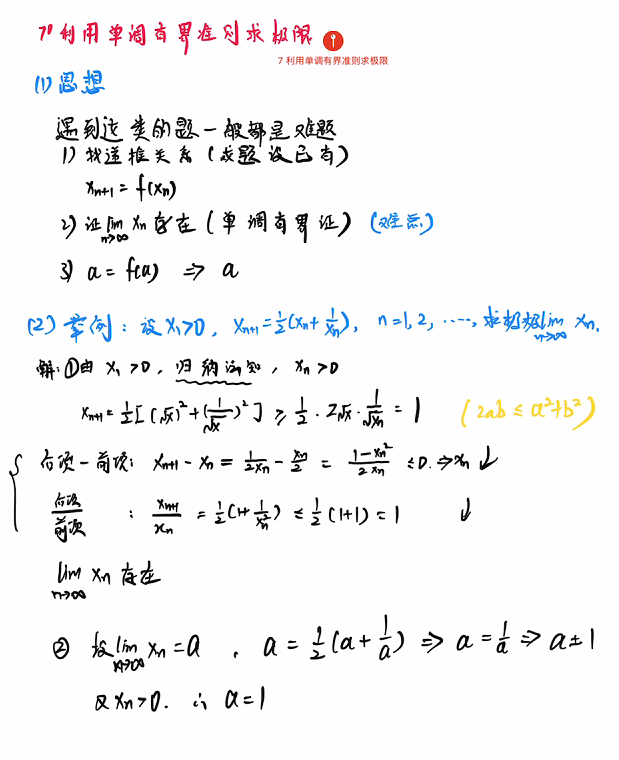 7° 利用单调有界准则求极限
7 利用单调有界准则求极限
(1) 思想
遇到这类的题一般都是难题
1) 找递推关系 (或题设已有)
xₙ₊₁ = f(xₙ)
2) 证 lim_{n→∞} xₙ 存在 (单调有界证) (难点)
3) a = f(a) ⇒ a
(2) 举例: 设 x₁>0, xₙ₊₁ = 1/2(xₙ + 1/xₙ), n=1, 2, ……, 求极限 lim_{n→∞} xₙ.
解: ① 由 x₁ >0, 归纳法知, xₙ >0
xₙ₊₁ = 1/2[(√x)² + (1/√x)²] ≥ 1/2 · 2√x · 1/√xₙ = 1 (2ab ≤ a²+b²)
后项-前项: xₙ₊₁ - xₙ = 1/(2xₙ) - xₙ/2 = (1-xₙ²)/(2xₙ) ≤ 0. ⇒ xₙ ↓
后项/前项 : xₙ₊₁/xₙ = 1/2(1+1/xₙ²) ≤ 1/2(1+1) = 1 ↓
lim_{n→∞} xₙ 存在
② 设 lim_{n→∞} xₙ = a, a = 1/2(a + 1/a) ⇒ a = 1/a ⇒ a ± 1
又 xₙ >0. ∴ a = 1